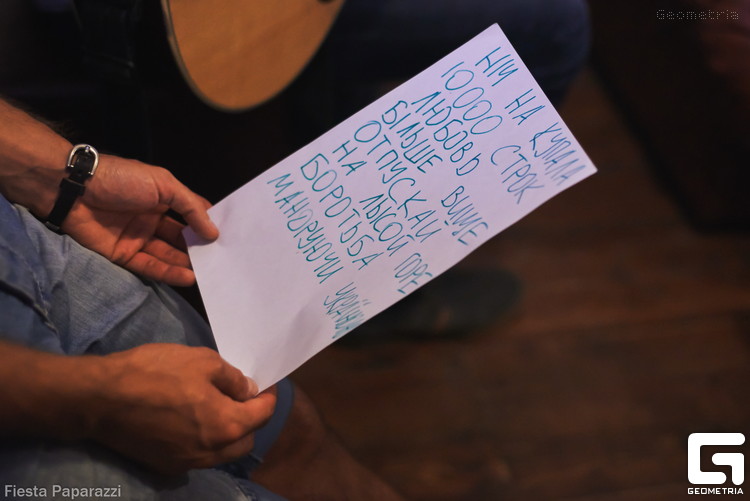 Geometria
НІЧ НА КУПАЛА
10000 СТРОК
ЛЮБОВЬ
БІЛЬШЕ ВИЩЕ
ОТПУСКАЙ
НА ЛЫСОЙ ГОРЕ
БОРОТЬБА
МАНДРУЮЧИ УКРАЇНОЮ
Fiesta Paparazzi
GEOMETRIA